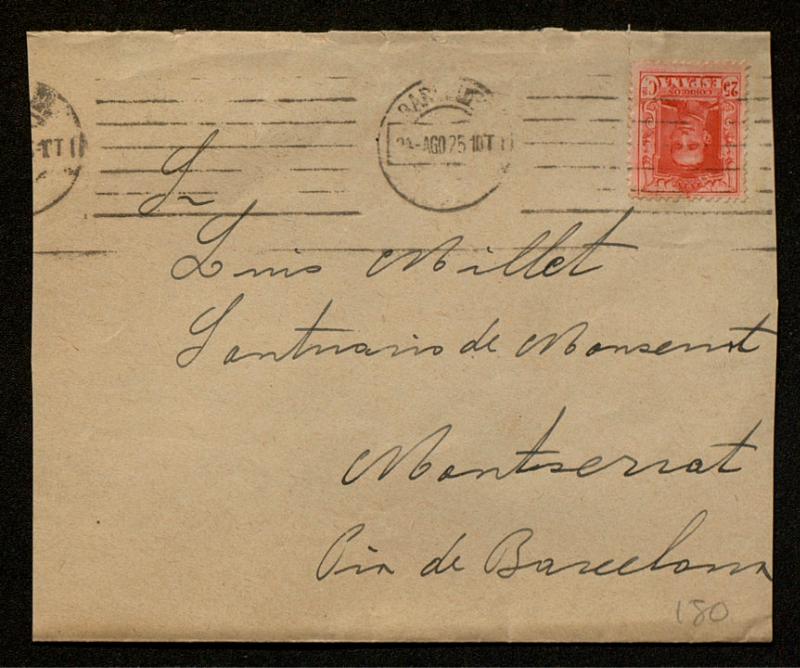 BAR
AGO 25 10T
25 Cs
CORREOS
ESPAÑA
Sr
Luis Millet
Santuario de Monserrat
Montserrat
Pia de Barcelona
180